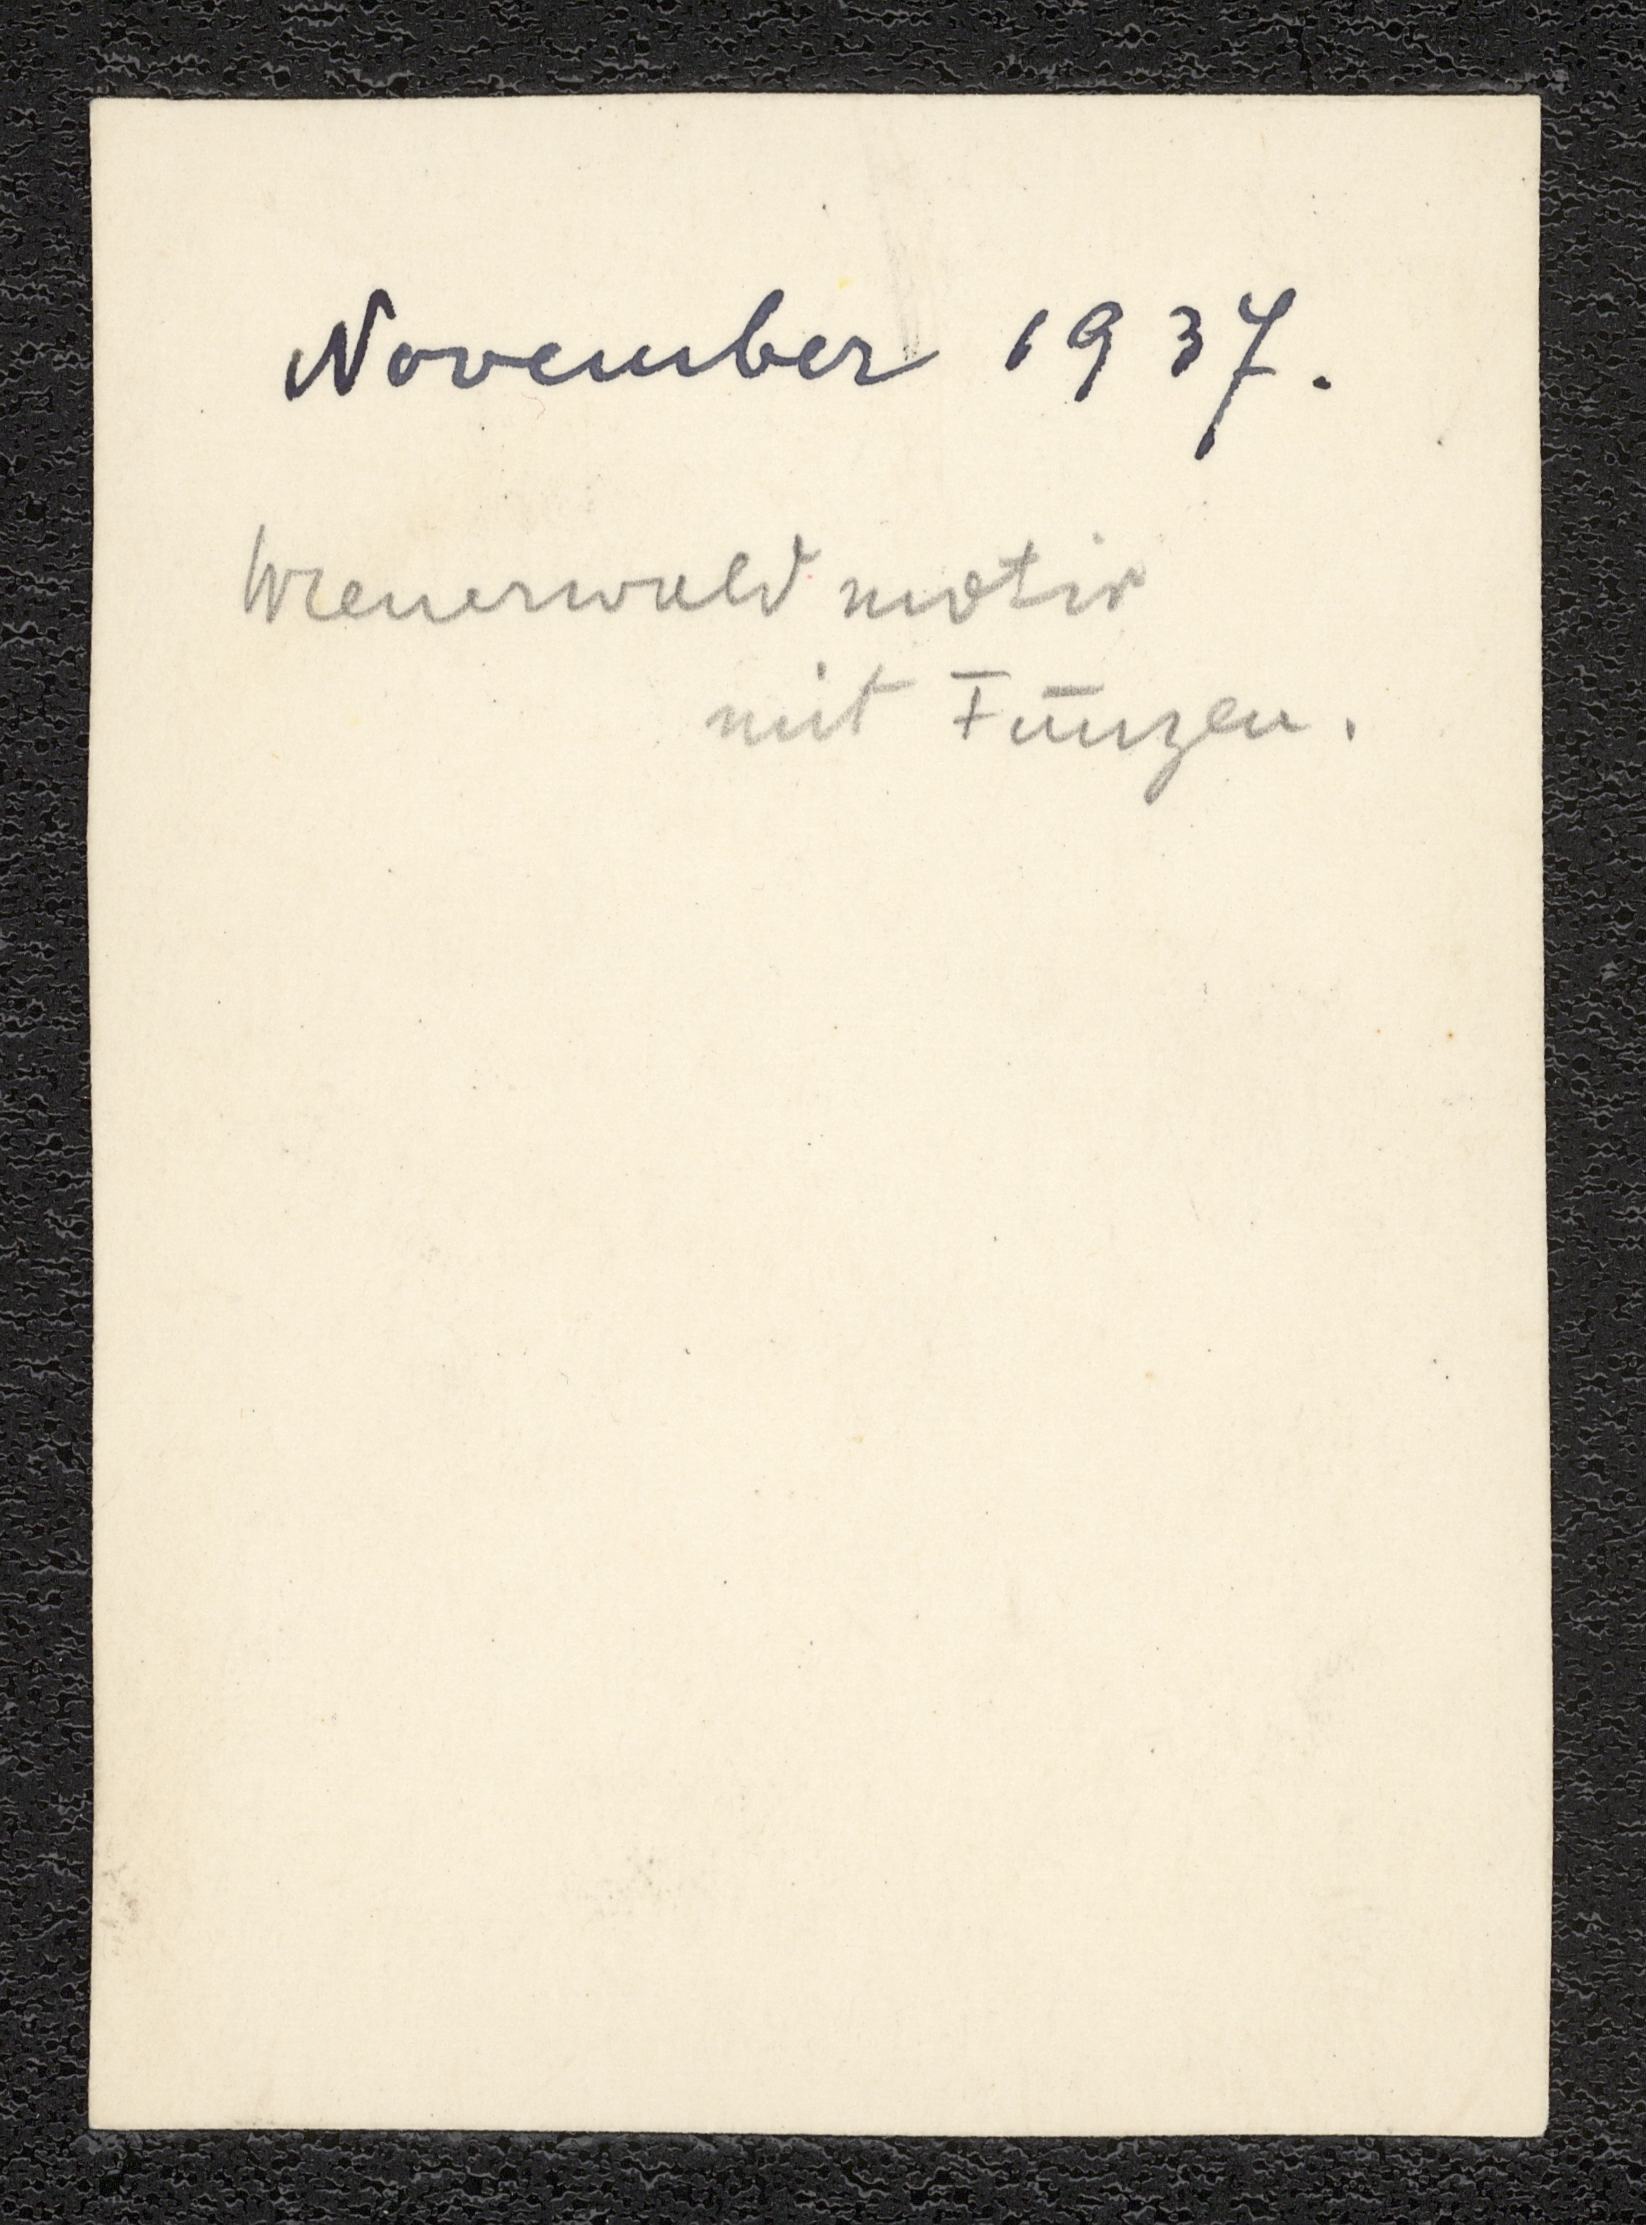 November 1937.
Wienerwald motiv
mit Funzen.